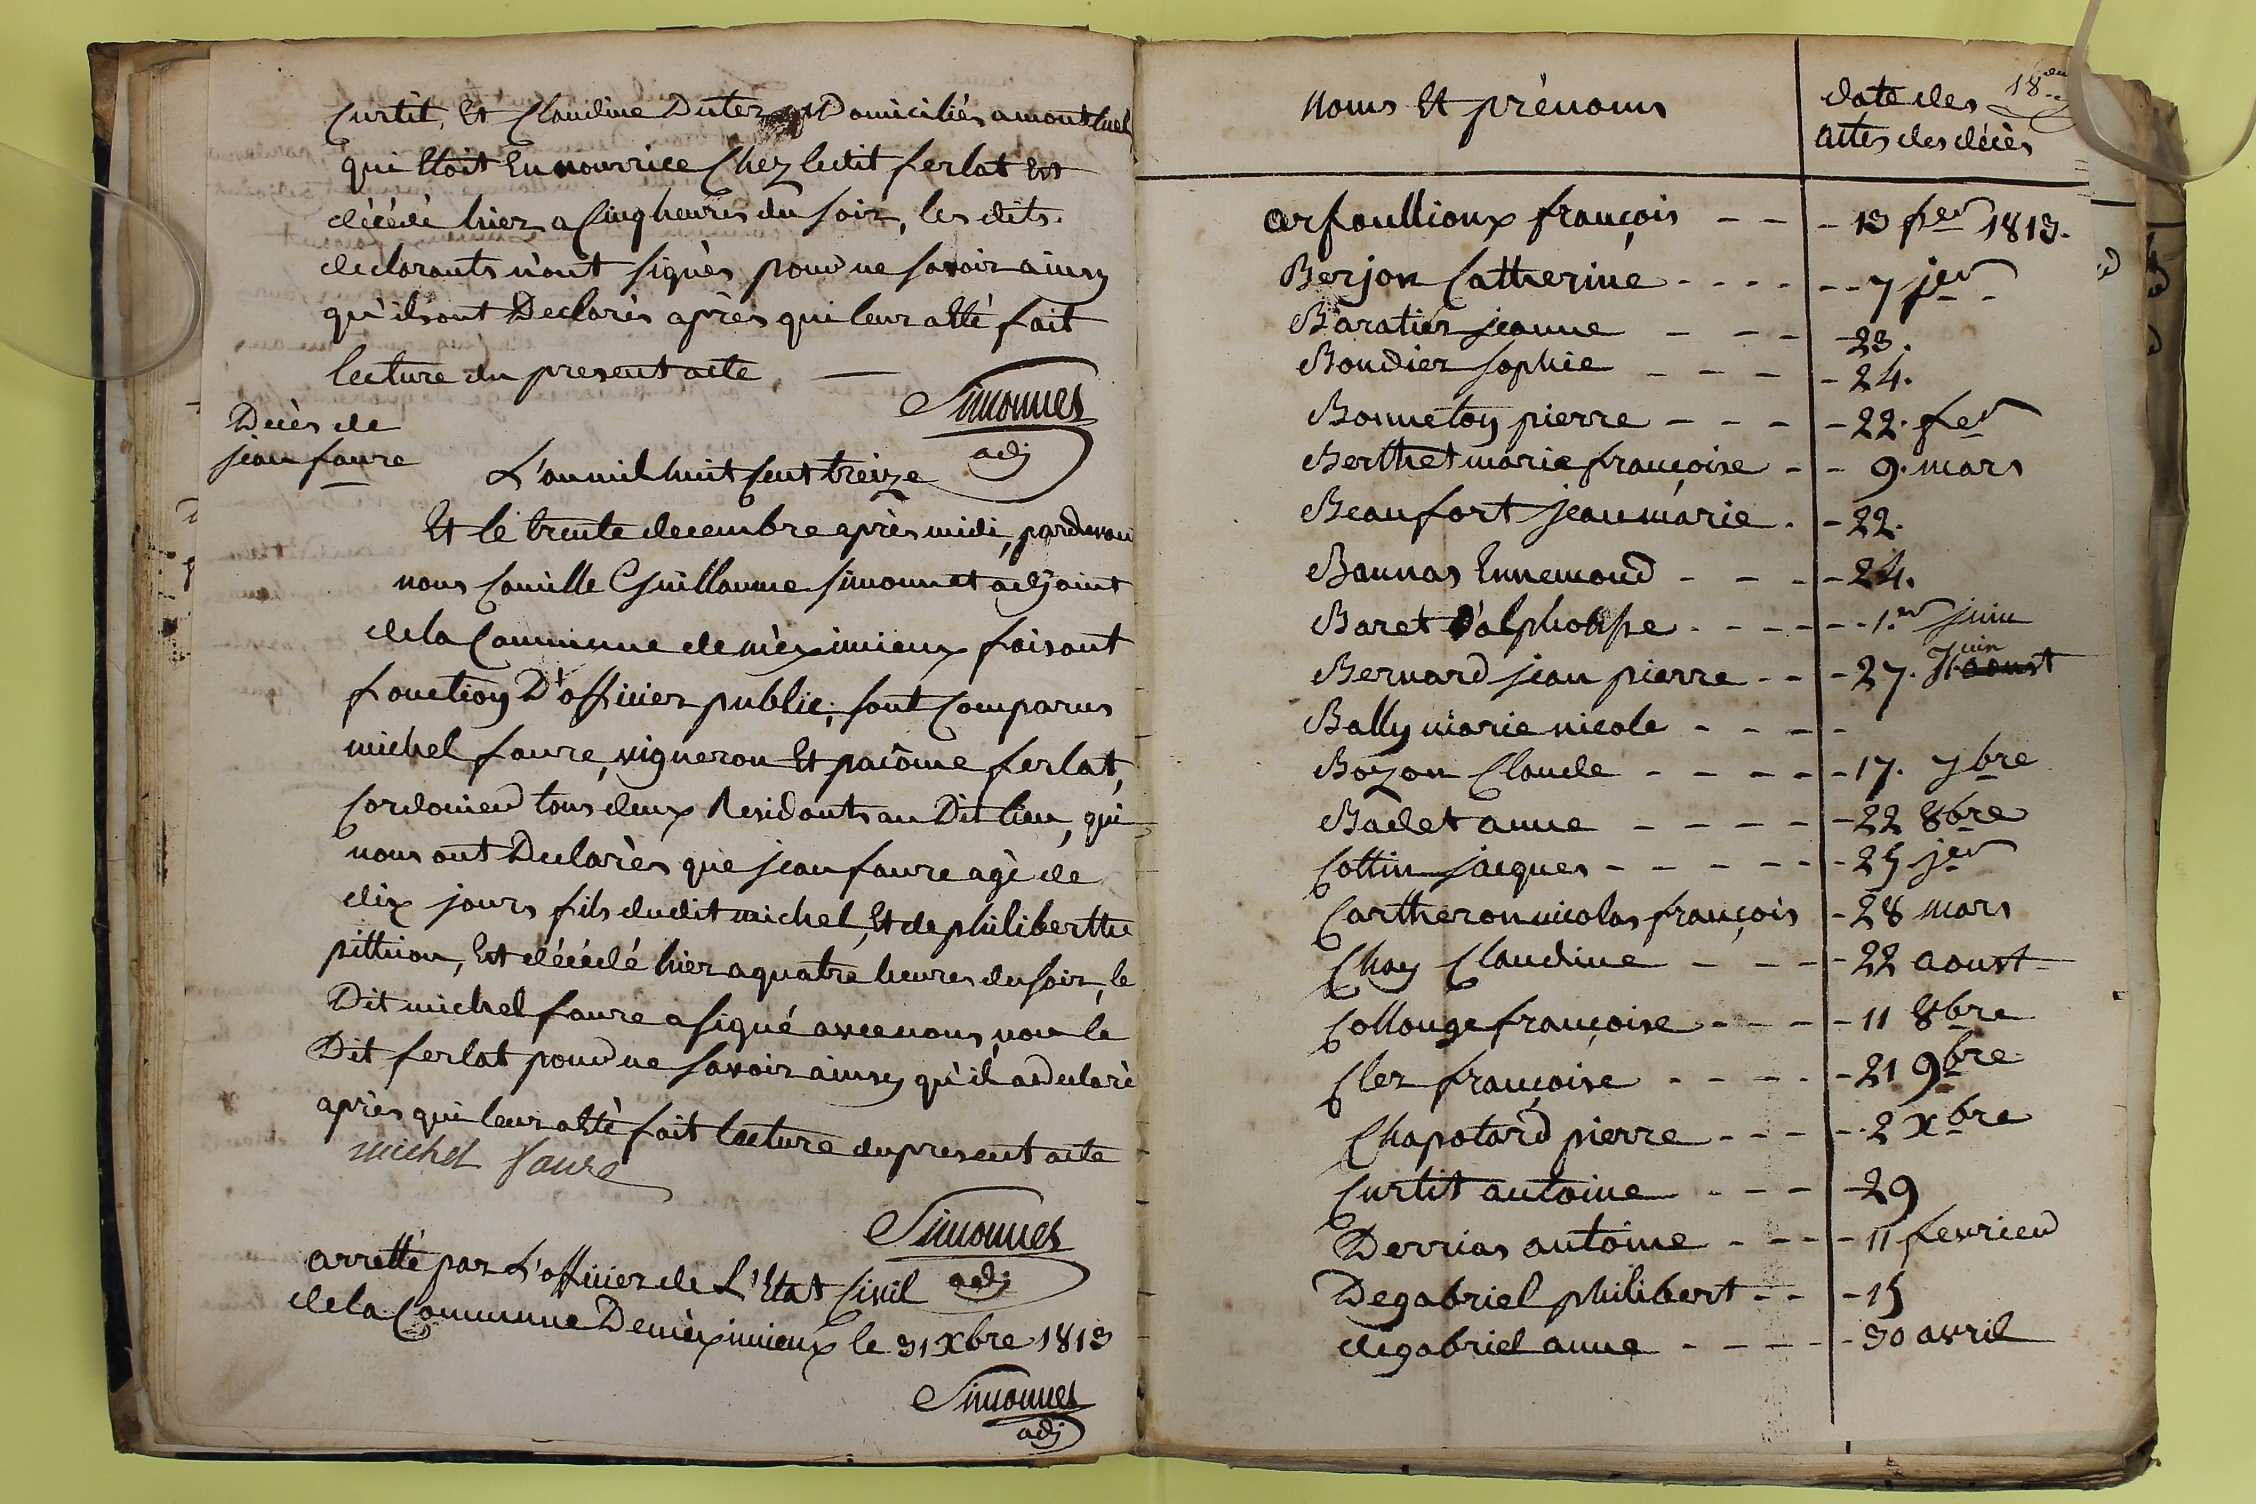 Curtit, Et Claudine Duter Domiciliés a montluel
qui Etoit En nourrice Chez ledit ferlat Est
décédé hier a Cinq heures du soir, les dits
declarants n'ont signés pour ne savoir ainsy
qu'ils ont Declarés après que leur a Eté fait
lecture du present acte
Simonnet
adj
Decès de
jean faure
L'an mil huit Cent treize
Et le trente decembre après midi, pardevant
nous Camille Guillaume Simonnet adjoint
de la Commune de mèximieux faisant
fonction D'officier public, sont Comparus
michel faure, vigneron Et pacôme ferlat,
Cordonier tous deux Residants au Dit lieu, qui
nous ont Declarès que jean faure agè de
dix jours fils dudit michel, Et de philiberthe
pithion, Est décédé hier a quatre heures du soir, le
Dit michel faure a signé avec nous, non le
Dit ferlat pour ne savoir ainsy qu'il a declaré
après que leur a Eté fait lecture du present acte
michel faure
Simonnet
adj
arretté par L'officier de L'Etat Civil
de la Commune De mèximieux le 31 Xbre 1813
Simonnet
adj
Noms Et prénoms
date des
actes des décès
18
arfoullioux françois - - - 13 fer 1813.
Berjon Catherine - - - - - - 7 jer
Baratier jeanne - - - - 23.
Boudier sophie - - - - 24.
Bonneton pierre - - - - 22. fer
Berthet marie françoise - - 9. mars
Beaufort jean marie. - 22.
Baunas Ennemond - - - - 24.
Baret D'alphonse - - - - - - 1er juin
Bernard jean pierre - - - 27. juin
Bally marie nicole - - - -
Bozon Claude - - - - - 17. 7bre
Badet anne - - - - - 22 8bre
Cottin jacques - - - - - - 25 jer
Cartheron nicolas françois - 28 mars
Chay Claudine - - - - 22 aoust
Collonge françoise - - - - 11 8bre
Cler françoise - - - - - 21 9bre
Chapotard pierre - - - - 2 Xbre
Curtit antoine - - - - 29
Derrias antoine - - - - 11 fevrier
Degabriel philibert - - - 15
degabriel anne - - - - - 30 avril